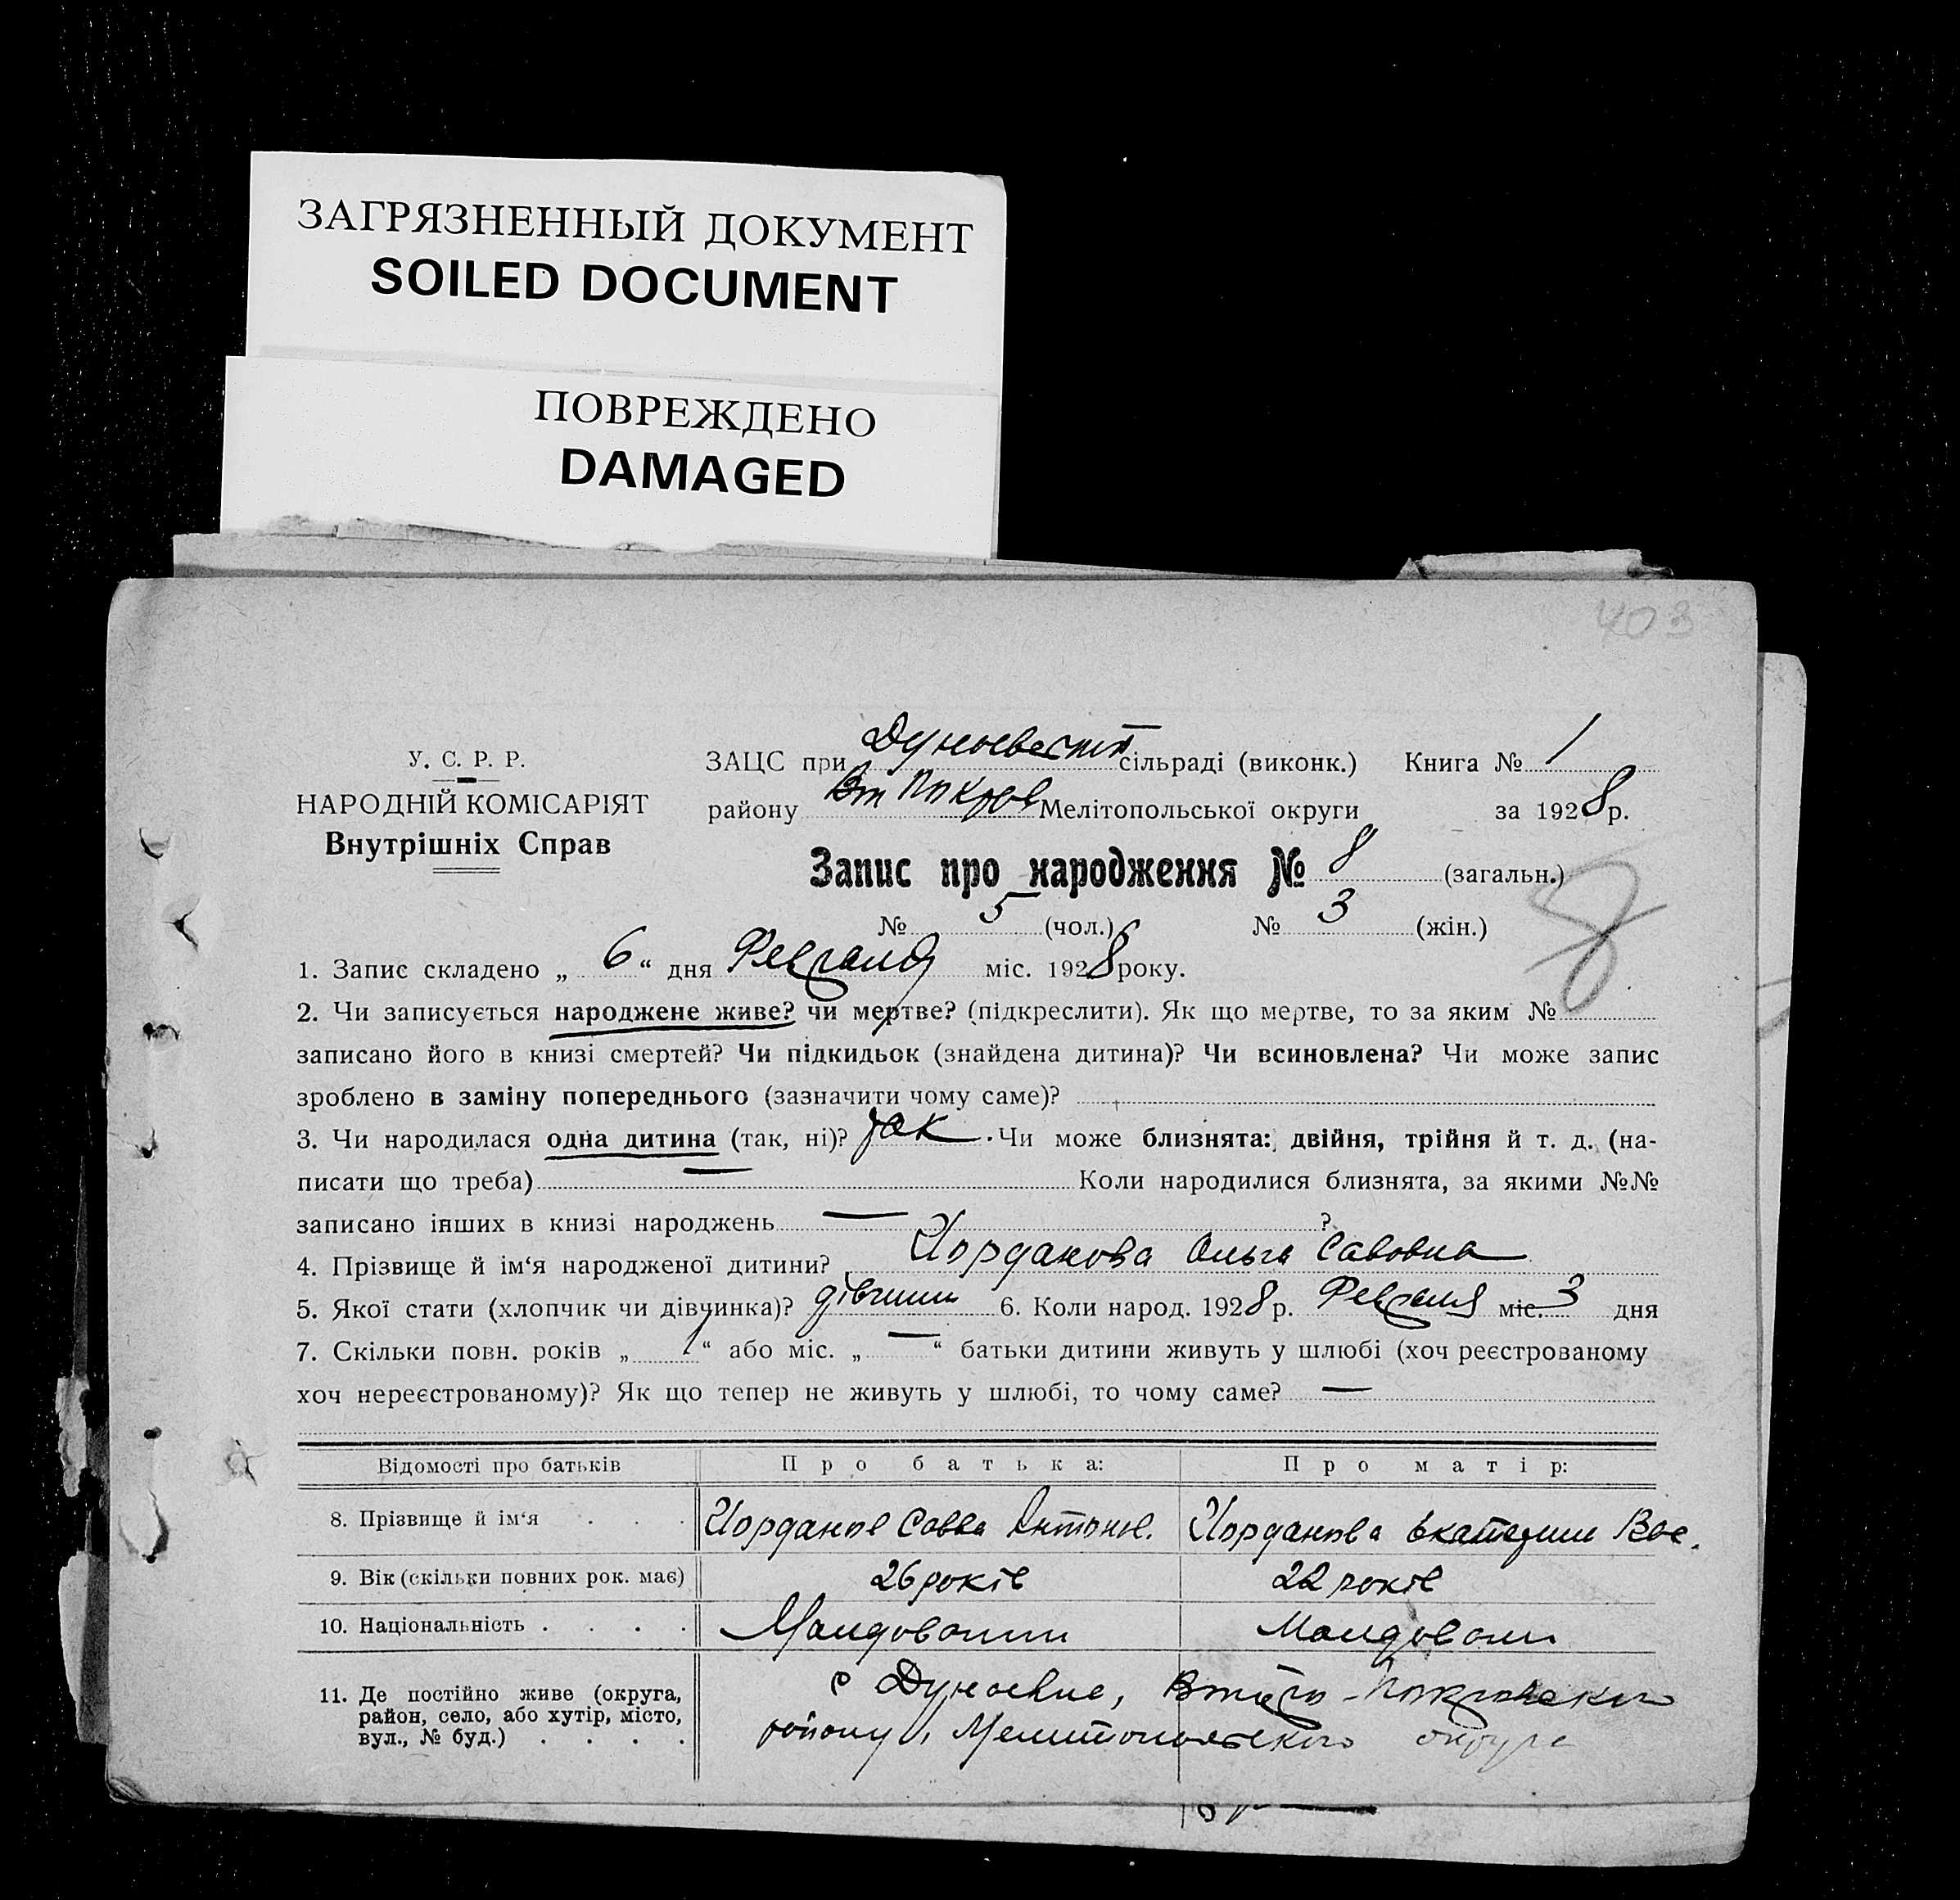 ЗАГРЯЗНЕННЫЙ ДОКУМЕНТ
SOILED DOCUMENT
ПОВРЕЖДЕНО
DAMAGED
403
У. С. Р. Р.
НАРОДНІЙ КОМІСАРІЯТ
Внутрішніх Справ
ЗАЦС при Дуноевской сільраді (виконк.) Книга № 1
району Вт Покров Мелітопольської округи за 1928 р.
Запис про народження № 8 (загальн.)
8
№ 5 (чол.) № 3 (жін.)
1. Запис складено „ 6 “ дня Февраля міс. 1928 року.
2. Чи записується народжене живе? чи мертве? (підкреслити). Як що мертве, то за яким №
записано його в книзі смертей? Чи підкидьок (знайдена дитина)? Чи всиновлена? Чи може запис
зроблено в заміну попереднього (зазначити чому саме)?
3. Чи народилася одна дитина (так, ні)? так. Чи може близнята: двійня, трійня й т. д. (на-
писати що треба) — Коли народилися близнята, за якими №№
записано інших в книзі народжень — ?
4. Прізвище й ім‘я народженої дитини? Иорданова Ольга Савовна
5. Якої стати (хлопчик чи дівчинка)? дівчини 6. Коли народ. 1928 р. Февраля міс. 3 дня
7. Скільки повн. років „ 1 “ або міс. „ — “ батьки дитини живуть у шлюбі (хоч реєстрованому
хоч нереєстрованому)? Як що тепер не живуть у шлюбі, то чому саме? —
Відомості про батьків Про батька: Про матір:
8. Прізвище й ім‘я . . . Иорданов Савва Антонов. Иорданова Екатерини Вас.
9. Вік (скільки повних рок. має) 26 років 22 років
10. Національність . . . . Молдовани Молдовани
11. Де постійно живе (округа, с Дуноевке, Второ-Покровского
район, село, або хутір, місто, району, Мелитопольского округа
вул., № буд.) . . . .